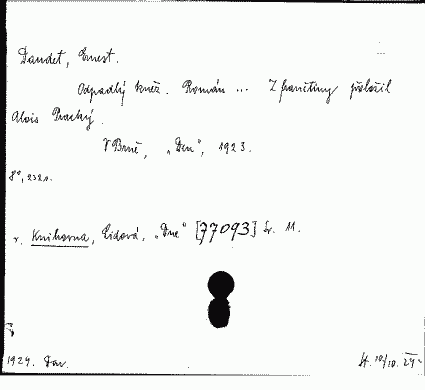 Daudet, Ernest.
Odpadlý kněz. Román ... Z franštiny přeložil
Alois Pracký.
V Brně, „Den“, 1923.
8°, 232 s.
v. Knihovna, Lidová, „Dne“ [77093] sv. 11.
1924. Dar.
St. 10/10. 24